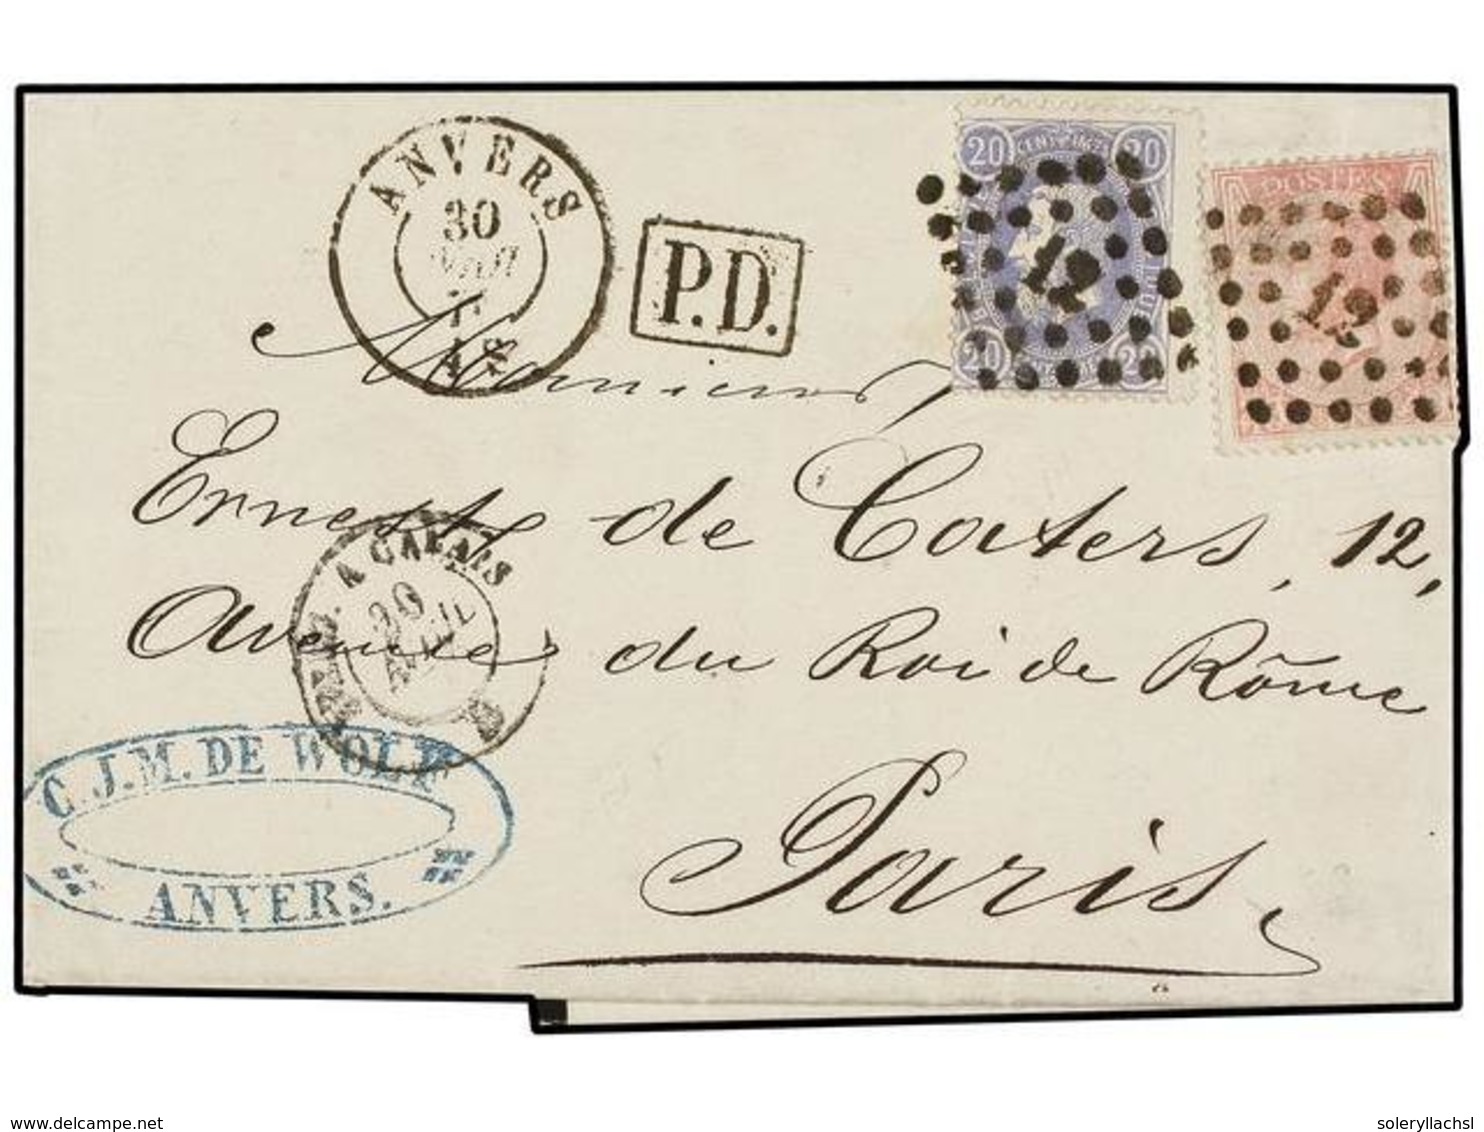 ANVERS
30
P.D.
20 20
20 20
12
POSTES
12
Monsieur
Erneste de Caters, 12,
Avenue du Roi de Rôme
Paris
A CALAIS
30
C.J.M. DE WOLF
ANVERS.
delcampe.net
soleryllachsl